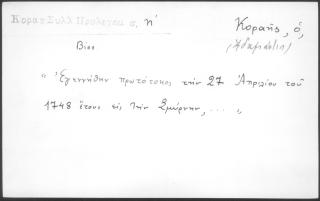 Κοραῆς, ὁ,
(Ἀδαμάντιος)
Βίος
„ Ἐγεννήθην πρωτότοκος τὴν 27 Ἀπριλίου τοῦ
1748 ἔτους εἰς τὴν Σμύρνην, ... „